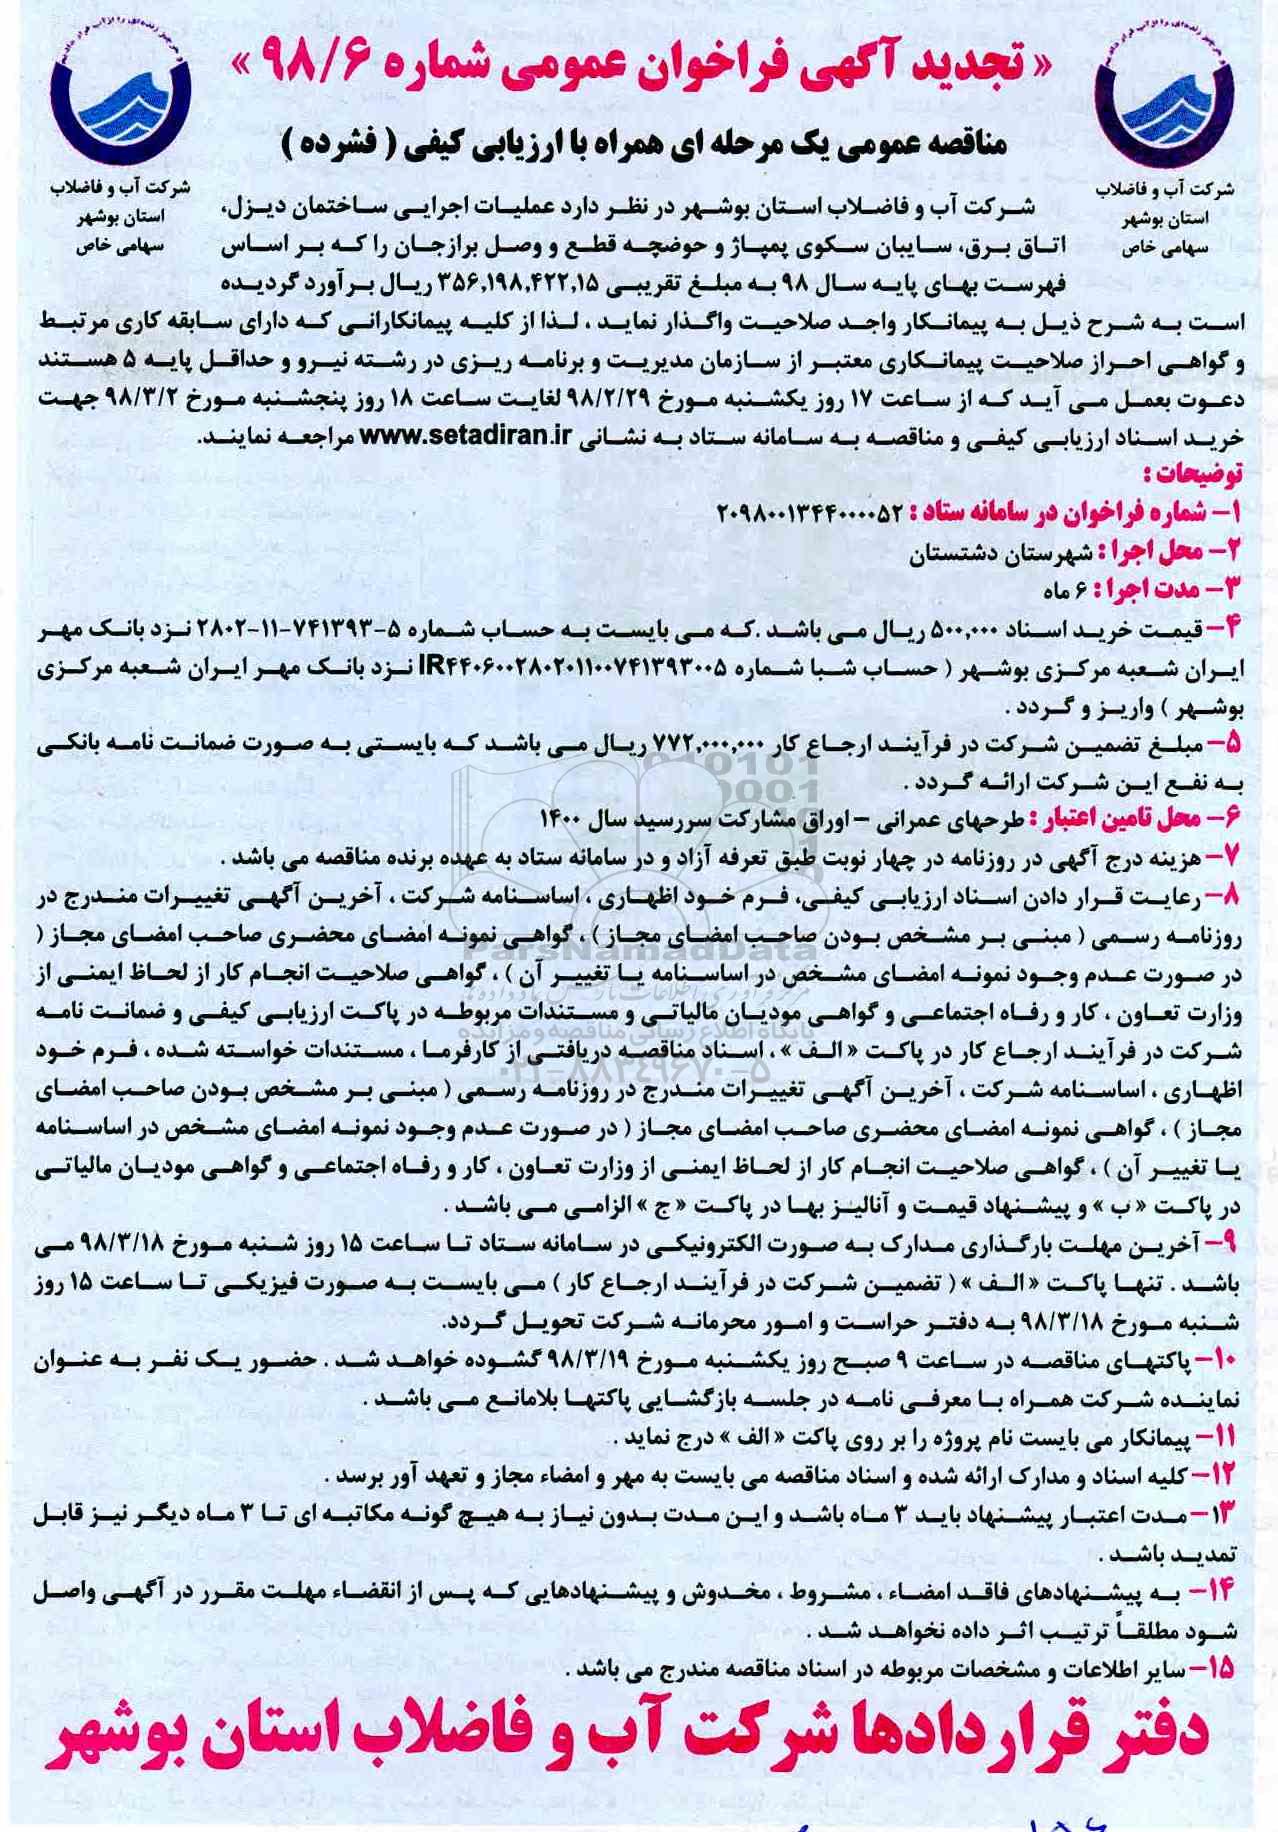 « تجدید آگهی فراخوان عمومی شماره ۹۸/۶ »
مناقصه عمومی یک مرحله ای همراه با ارزیابی کیفی ( فشرده )
شرکت آب و فاضلاب
استان بوشهر
سهامی خاص
شرکت آب و فاضلاب
استان بوشهر
سهامی خاص
شرکت آب و فاضلاب استان بوشهر در نظر دارد عملیات اجرایی ساختمان دیزل،
اتاق برق، سایبان سکوی پمپاژ و حوضچه قطع و وصل برازجان را که بر اساس
فهرست بهای پایه سال ۹۸ به مبلغ تقریبی ۱۵,۳۵۶,۱۹۸,۴۲۲ ریال برآورد گردیده
است به شرح ذیل به پیمانکار واجد صلاحیت واگذار نماید ، لذا از کلیه پیمانکارانی که دارای سابقه کاری مرتبط
و گواهی احراز صلاحیت پیمانکاری معتبر از سازمان مدیریت و برنامه ریزی در رشته نیرو و حداقل پایه ۵ هستند
دعوت بعمل می آید که از ساعت ۱۷ روز یکشنبه مورخ ۹۸/۲/۲۹ لغایت ساعت ۱۸ روز پنجشنبه مورخ ۹۸/۳/۲ جهت
خرید اسناد ارزیابی کیفی و مناقصه به سامانه ستاد به نشانی www.setadiran.ir مراجعه نمایند.
توضیحات :
۱- شماره فراخوان در سامانه ستاد : ۲۰۹۸۰۰۱۳۴۴۰۰۰۰۵۲
۲- محل اجرا : شهرستان دشتستان
۳- مدت اجرا : ۶ ماه
۴- قیمت خرید اسناد ۵۰۰,۰۰۰ ریال می باشد .که می بایست به حساب شماره ۵-۷۴۱۳۹۳-۱۱-۲۸۰۲ نزد بانک مهر
ایران شعبه مرکزی بوشهر ( حساب شبا شماره IR۴۴۰۶۰۰۲۸۰۲۰۱۱۰۰۷۴۱۳۹۳۰۰۵ نزد بانک مهر ایران شعبه مرکزی
بوشهر ) واریز و گردد .
۵- مبلغ تضمین شرکت در فرآیند ارجاع کار ۷۷۲,۰۰۰,۰۰۰ ریال می باشد که بایستی به صورت ضمانت نامه بانکی
به نفع این شرکت ارائه گردد .
۶- محل تامین اعتبار : طرحهای عمرانی – اوراق مشارکت سررسید سال ۱۴۰۰
۷- هزینه درج آگهی در روزنامه در چهار نوبت طبق تعرفه آزاد و در سامانه ستاد به عهده برنده مناقصه می باشد .
۸- رعایت قرار دادن اسناد ارزیابی کیفی، فرم خود اظهاری ، اساسنامه شرکت ، آخرین آگهی تغییرات مندرج در
روزنامه رسمی ( مبنی بر مشخص بودن صاحب امضای مجاز ) ، گواهی نمونه امضای محضری صاحب امضای مجاز (
در صورت عدم وجود نمونه امضای مشخص در اساسنامه یا تغییر آن ) ، گواهی صلاحیت انجام کار از لحاظ ایمنی از
وزارت تعاون ، کار و رفاه اجتماعی و گواهی مودیان مالیاتی و مستندات مربوطه در پاکت ارزیابی کیفی و ضمانت نامه
شرکت در فرآیند ارجاع کار در پاکت « الف » ، اسناد مناقصه دریافتی از کارفرما ، مستندات خواسته شده ، فرم خود
اظهاری ، اساسنامه شرکت ، آخرین آگهی تغییرات مندرج در روزنامه رسمی ( مبنی بر مشخص بودن صاحب امضای
مجاز ) ، گواهی نمونه امضای محضری صاحب امضای مجاز ( در صورت عدم وجود نمونه امضای مشخص در اساسنامه
یا تغییر آن ) ، گواهی صلاحیت انجام کار از لحاظ ایمنی از وزارت تعاون ، کار و رفاه اجتماعی و گواهی مودیان مالیاتی
در پاکت « ب » و پیشنهاد قیمت و آنالیز بها در پاکت « ج » الزامی می باشد .
۹- آخرین مهلت بارگذاری مدارک به صورت الکترونیکی در سامانه ستاد تا ساعت ۱۵ روز شنبه مورخ ۹۸/۳/۱۸ می
باشد . تنها پاکت « الف » ( تضمین شرکت در فرآیند ارجاع کار ) می بایست به صورت فیزیکی تا ساعت ۱۵ روز
شنبه مورخ ۹۸/۳/۱۸ به دفتر حراست و امور محرمانه شرکت تحویل گردد.
۱۰- پاکتهای مناقصه در ساعت ۹ صبح روز یکشنبه مورخ ۹۸/۳/۱۹ گشوده خواهد شد . حضور یک نفر به عنوان
نماینده شرکت همراه با معرفی نامه در جلسه بازگشایی پاکتها بلامانع می باشد .
۱۱- پیمانکار می بایست نام پروژه را بر روی پاکت « الف » درج نماید .
۱۲- کلیه اسناد و مدارک ارائه شده و اسناد مناقصه می بایست به مهر و امضاء مجاز و تعهد آور برسد .
۱۳- مدت اعتبار پیشنهاد باید ۳ ماه باشد و این مدت بدون نیاز به هیچ گونه مکاتبه ای تا ۳ ماه دیگر نیز قابل
تمدید باشد .
۱۴- به پیشنهادهای فاقد امضاء ، مشروط ، مخدوش و پیشنهادهایی که پس از انقضاء مهلت مقرر در آگهی واصل
شود مطلقاً ترتیب اثر داده نخواهد شد .
۱۵- سایر اطلاعات و مشخصات مربوطه در اسناد مناقصه مندرج می باشد .
دفتر قراردادها شرکت آب و فاضلاب استان بوشهر
ParsNamadData
پایگاه اطلاع رسانی مناقصه و مزایده
۰۲۱-۸۸۳۴۹۶۷۰-۵